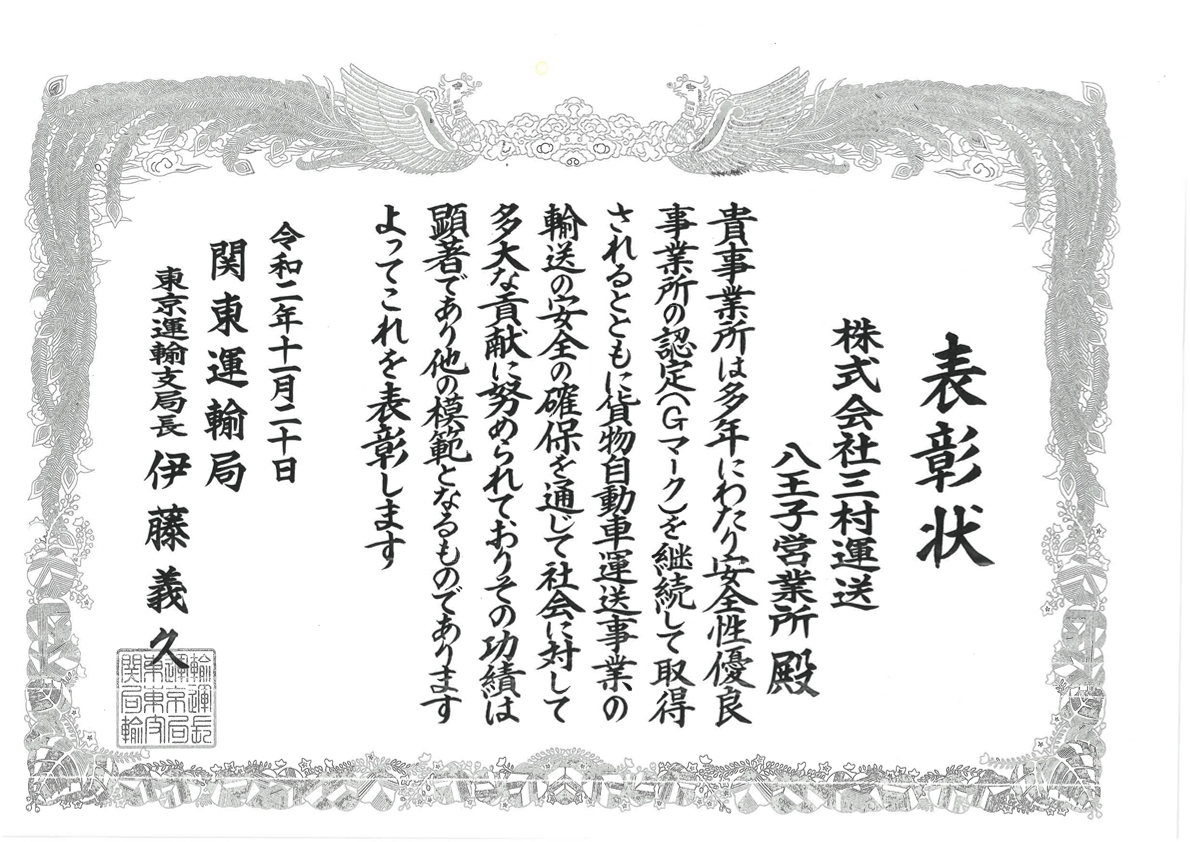 表彰状
株式会社三村運送
八王子営業所 殿
貴事業所は多年にわたり安全性優良
事業所の認定(Gマーク)を継続して取得
されるとともに貨物自動車運送事業の
輸送の安全の確保を通じて社会に対して
多大な貢献に努められておりその功績は
顕著であり他の模範となるものであります
よってこれを表彰します
令和二年十一月二十日
関東運輸局
東京運輸支局長 伊藤義久